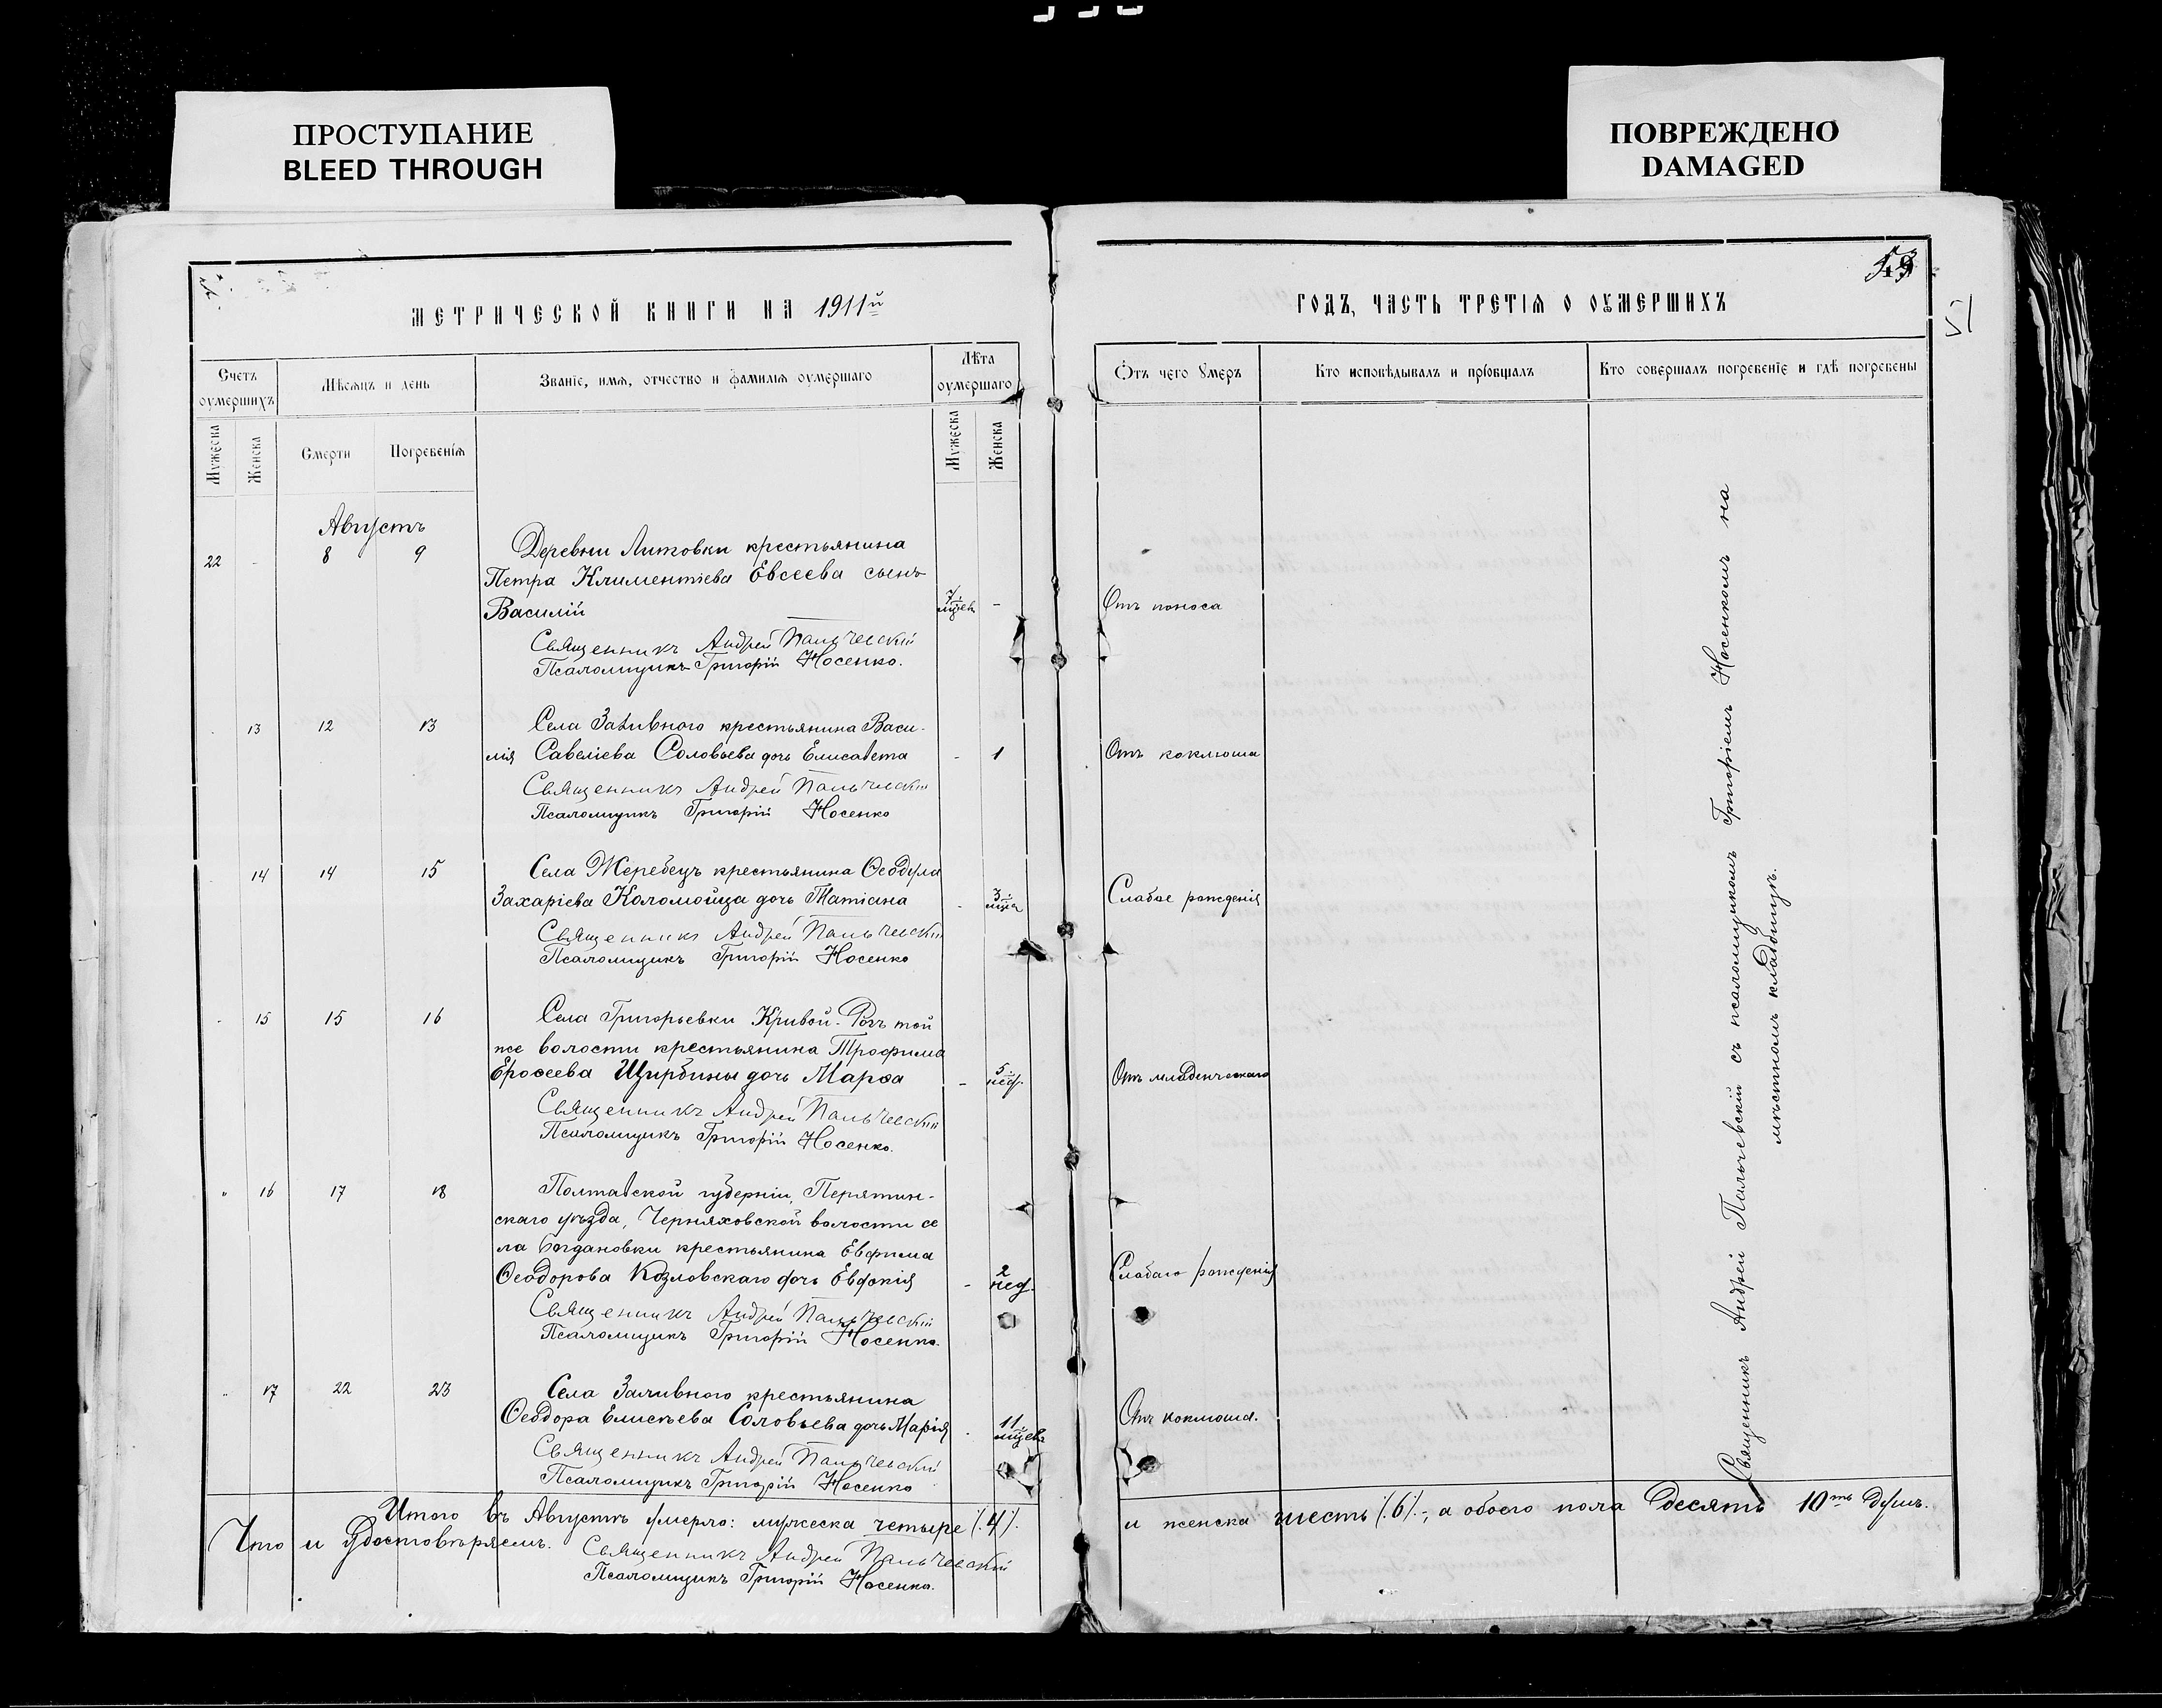 ПРОСТУПАНИЕ
BLEED THROUGH
ПОВРЕЖДЕНО
DAMAGED
51
МЕТРИЧЕСКОЙ КНИГИ НА 1911й
ГОДЪ, ЧАСТЬ ТРЕТІЯ О ОУМЕРШИХЪ
Счетъ оумершихъ
Мѣсяцъ и день
Званіе, имя, отчество и фамилія оумершаго
Лѣта оумершаго
Отъ чего умеръ
Кто исповѣдывалъ и пріобщалъ
Кто совершалъ погребеніе и гдѣ погребены
Мужеска
Женска
Смерти
Погребенія
Мужеска
Женска
Августъ
22 - 8 9 Деревни Литовки крестьянина
Петра Климентіева Евсеева сынъ
Василій 7 мцев - Отъ поноса
Священникъ Андрей Пальчевскій
Псаломщикъ Григорій Носенко.
13 12 13 Села Заливного крестьянина Васи-
лія Савеліева Соловьева дочь Елисавета - 1 Отъ коклюша
Священникъ Андрей Пальчевскій
Псаломщикъ Григорій Носенко
14 14 15 Села Жеребецъ крестьянина Ѳеодула
Захаріева Коломойца дочь Татіана - 3 мца Слабое рожденія
Священникъ Андрей Пальчевскій
Псаломщикъ Григорій Носенко
15 15 16 Села Григорьевки Кривой-Рогъ той
же волости крестьянина Трофима
Ероѳеева Щирбины дочь Марѳа - 5 нед. Отъ младенческаго
Священникъ Андрей Пальчевскій
Псаломщикъ Григорій Носенко.
" 16 17 18 Полтавской губерніи, Перятин-
скаго уѣзда, Черняховской волости се
ла Богдановки крестьянина Евфима
Ѳеодорова Козловскаго дочь Евдокія - 2 нед. Слабаго рожденія
Священникъ Андрей Пальчевскій
Псаломщикъ Григорій Носенко.
" 17 22 23 Села Заливного крестьянина
Ѳеодора Елисѣева Соловьева дочь Марія - 11 мцевъ Отъ коклюша.
Священникъ Андрей Пальчевскій
Псаломщикъ Григорій Носенко
Священникъ Андрей Пальчевскій съ псаломщикомъ Григоріемъ Носенкомъ на
мѣстномъ кладбищѣ.
Итого въ Августѣ умерло: мужеска четыре /.4/. и женска шесть /.6/.-, а обоего пола десять 10ть душъ.
Что и удостовѣряемъ. Священникъ Андрей Пальчевскій
Псаломщикъ Григорій Носенко.